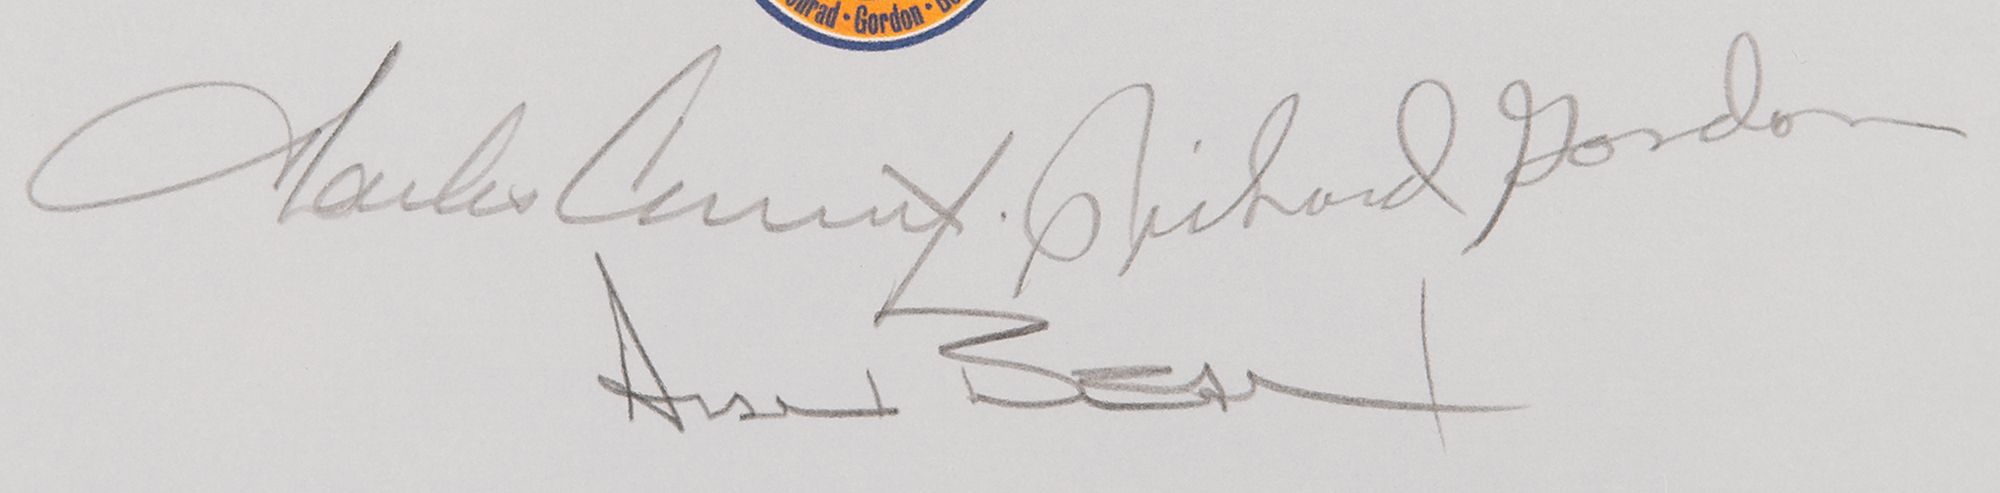 nrad · Gordon · Be
Charles Conrad Jr. Richard Gordon
Alan Bean